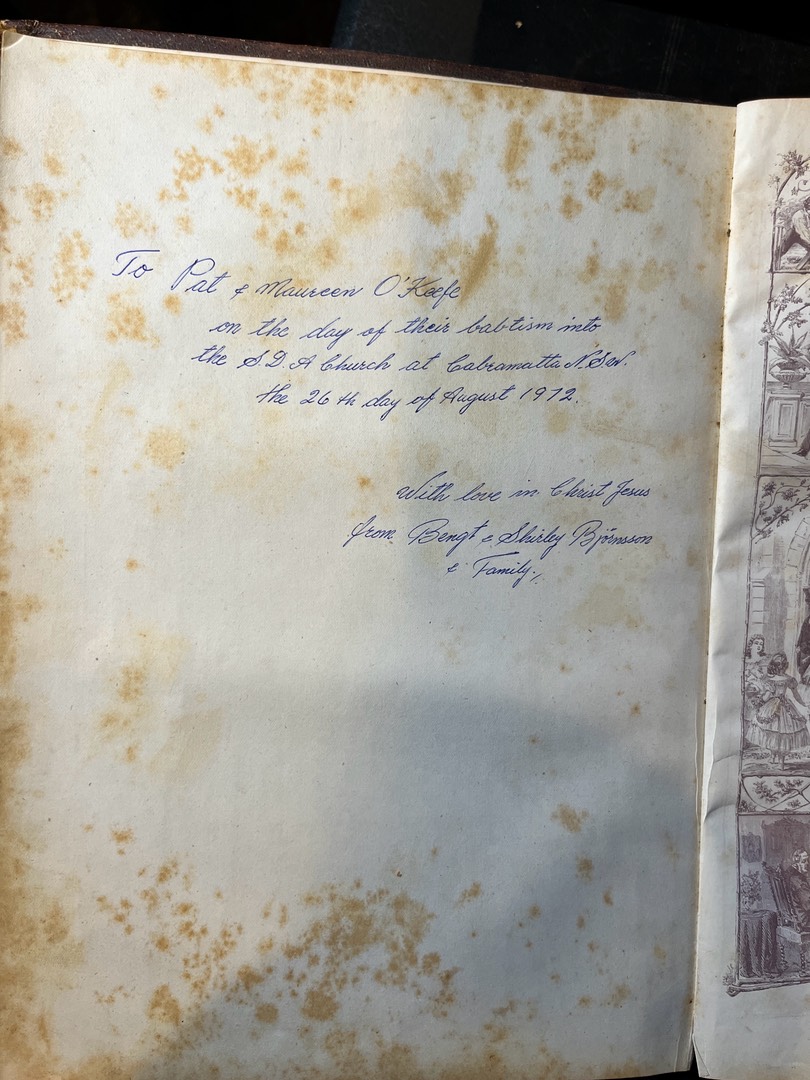 To Pat & Maureen O'Keefe
on the day of their babtism into
the S.D.A Church at Cabramatta N.S.W.
the 26th day of August 1972.
With love in Christ Jesus
from Bengt & Shirley Björnsson
& Family.